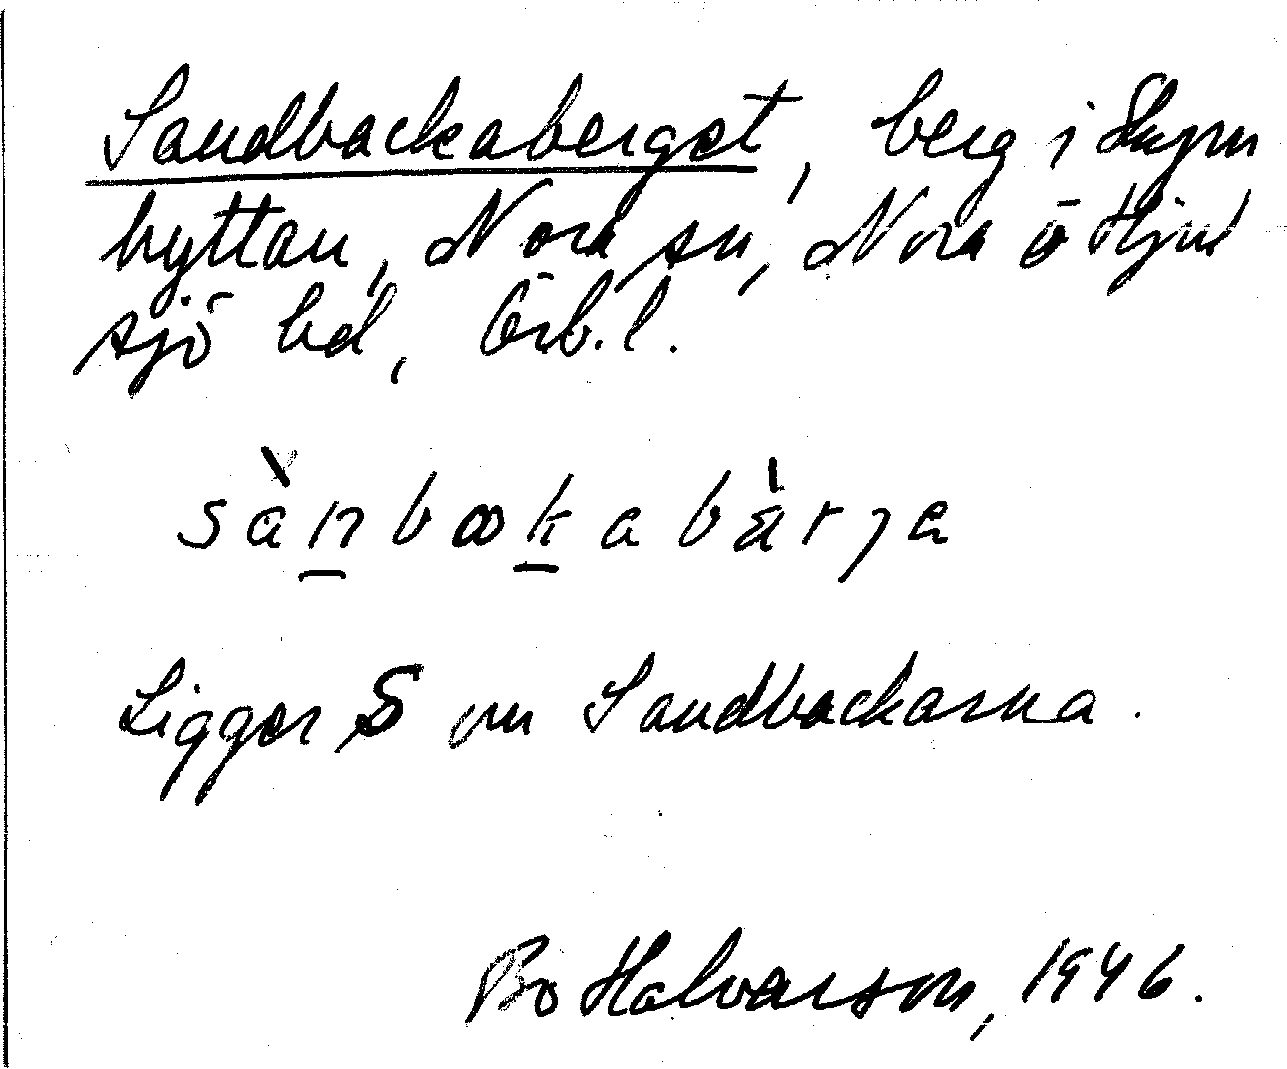 Sandbackaberget, berg i Skyrm
hyttan, Nora sn, Nora o Hjul
sjö bd, Örb. l.
Ligger S om Sandbackarna.
Bo Halvarson, 1946.